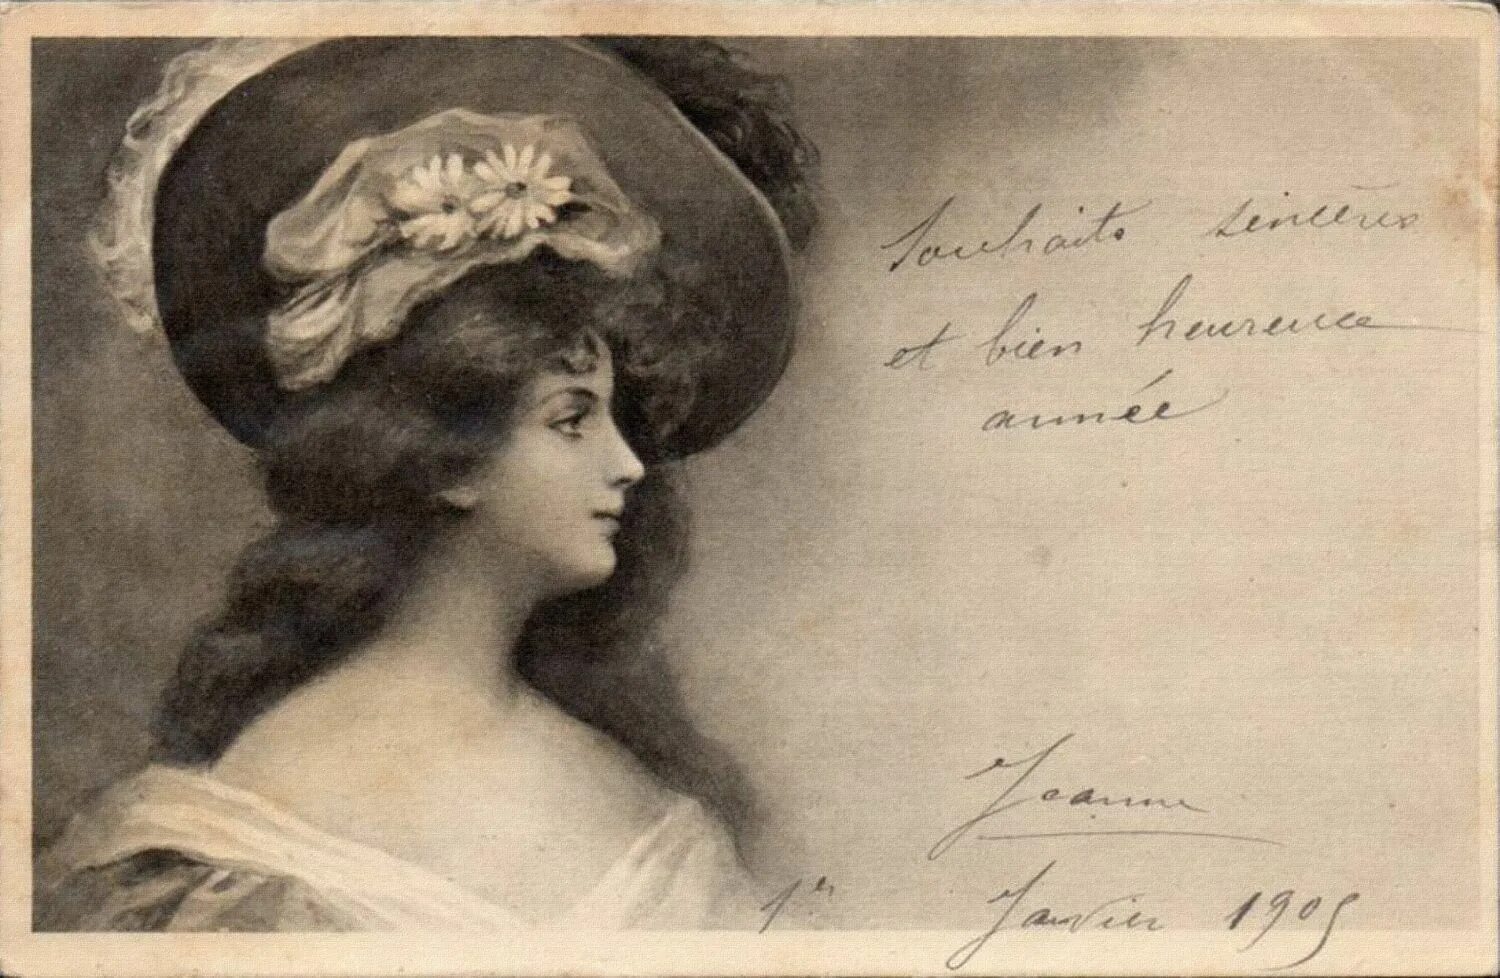 Souhaits sincères
et bien heureuse
année
Jeanne
1er Janvier 1905